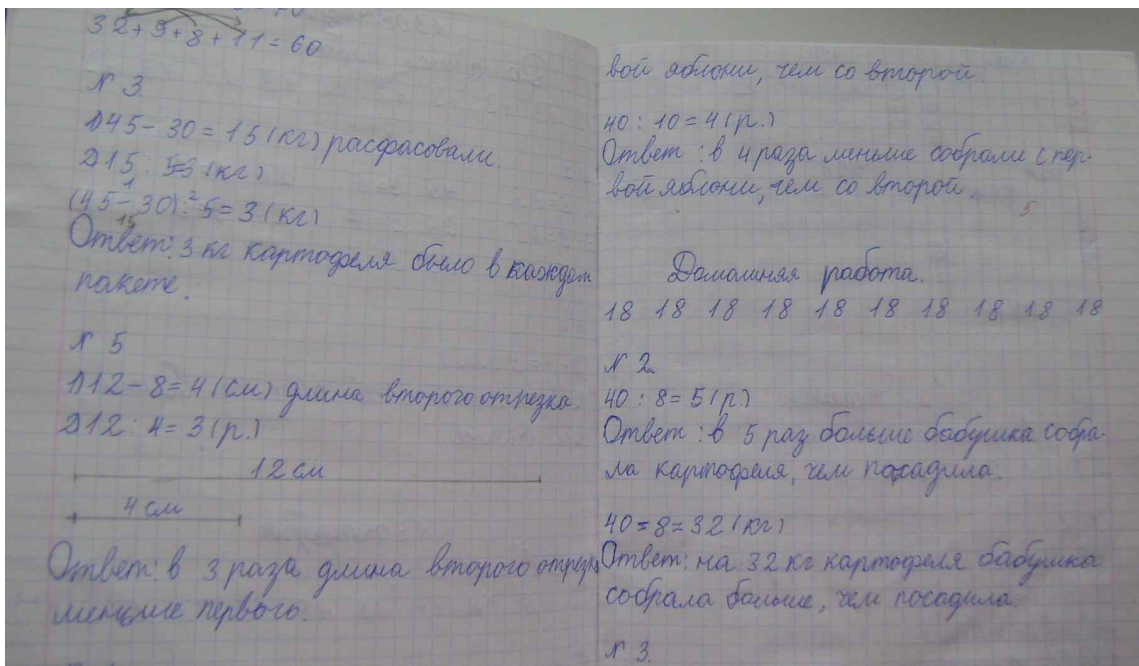 32+9+8+11=60
№ 3.
1)45-30=15(кг) расфасовали.
2)15:5=3(кг)
(45-30):5=3(кг)
Ответ: 3 кг картофеля было в каждом
пакете.
№ 5
1)12-8=4(см) длина второго отрезка.
2)12:4=3(р.)
12 см
4 см
Ответ: в 3 раза длина второго отрезка
меньше первого.
вой яблони, чем со второй.
40:10=4(р.)
Ответ: в 4 раза меньше собрали с пер-
вой яблони, чем со второй.
5
Домашняя работа.
18 18 18 18 18 18 18 18 18 18
№ 2.
40:8=5(р.)
Ответ: в 5 раз больше бабушка собра-
ла картофеля, чем посадила.
40-8=32(кг)
Ответ: на 32 кг картофеля бабушка
собрала больше, чем посадила.
№ 3.